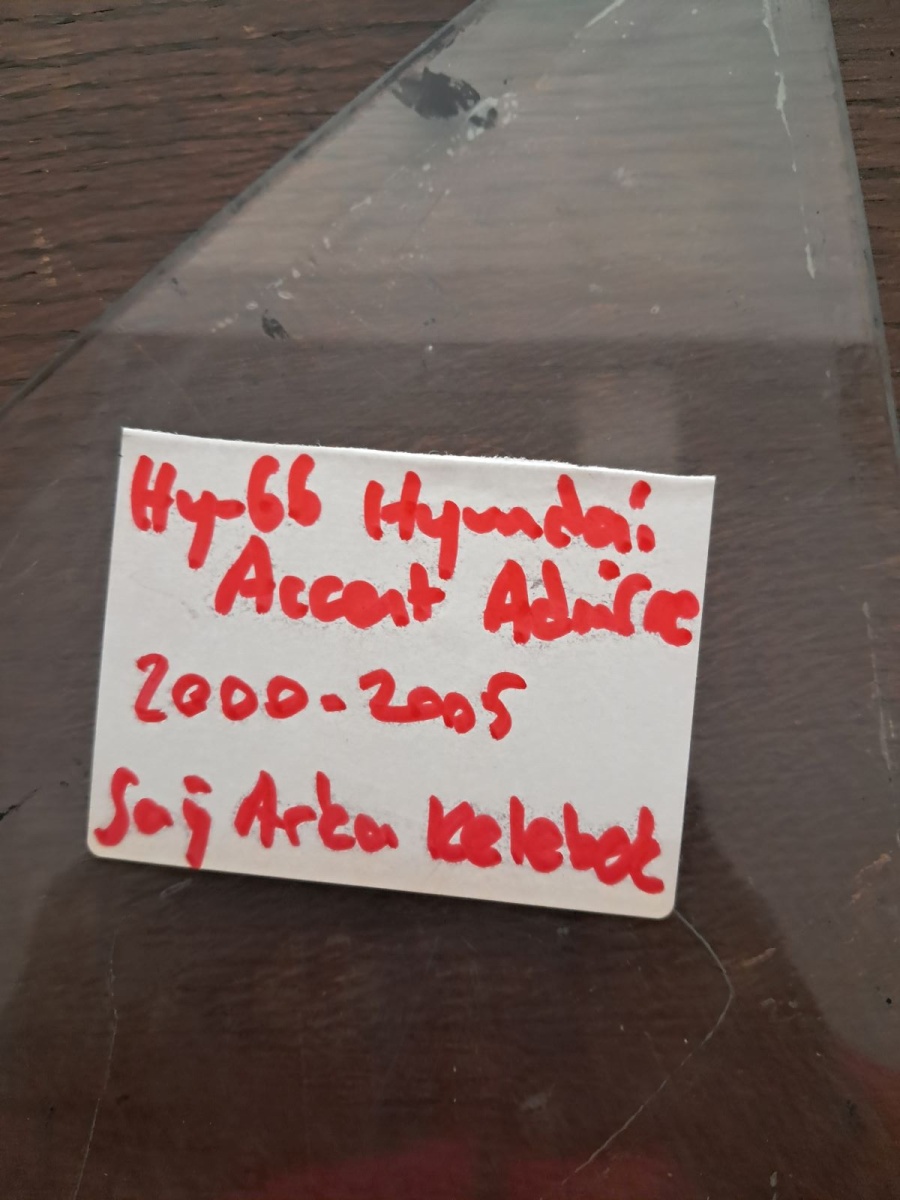 Hy-66 Hyundai
Accent Admire
2000-2005
Sağ Arka Kelebek